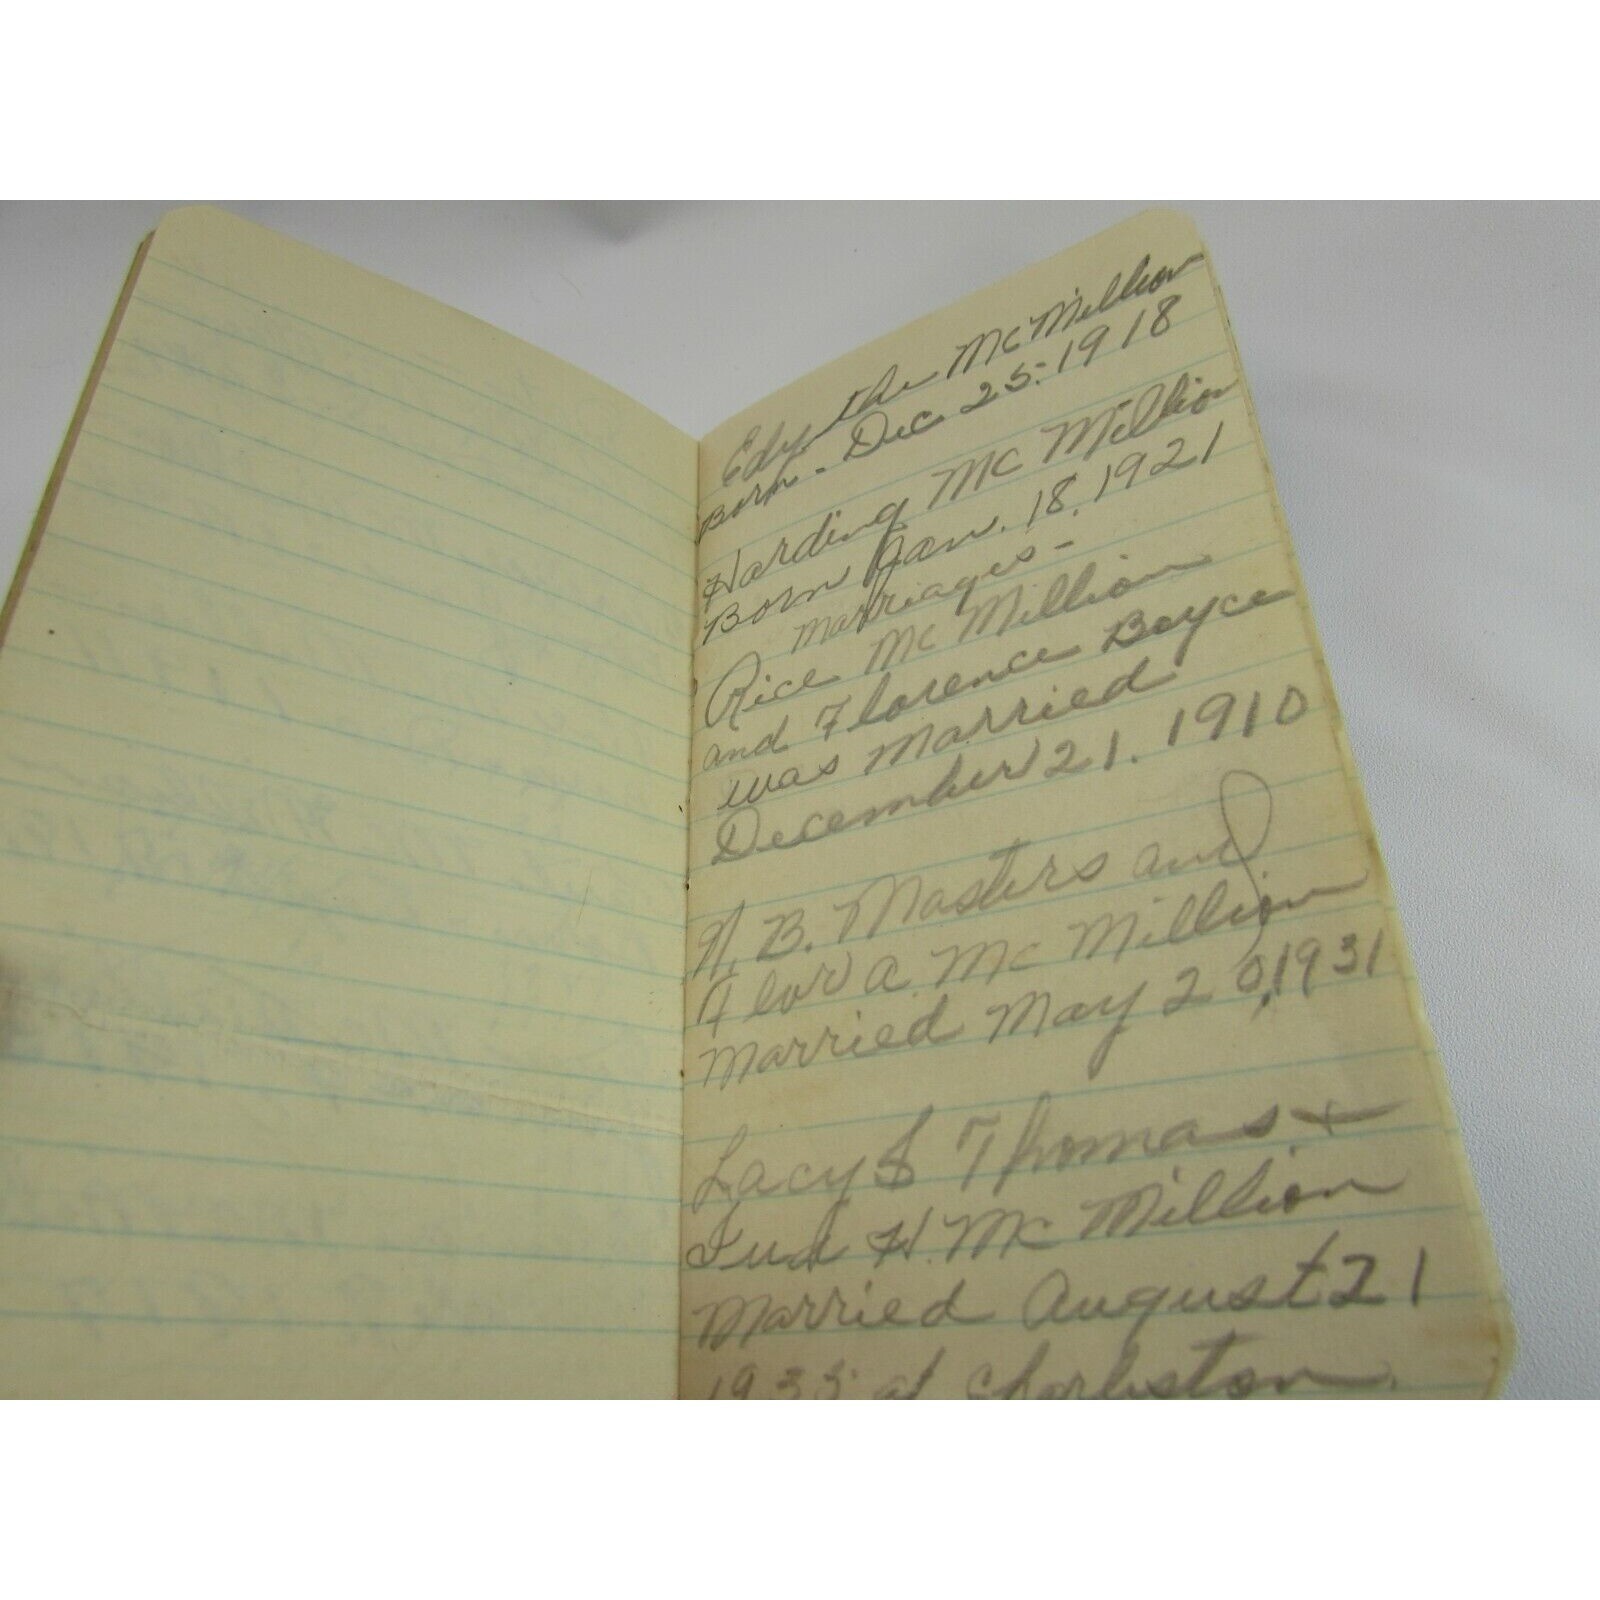 Edythe McMillion
Born - Dec 25. 1918
Harding McMillion
Born Jan. 18, 1921
Marriages -
Rice McMillion
and Florence Boyce
was Married
December 21. 1910
N. B. Masters and
Flora McMillion
Married May 20, 1931
Lacy S Thomas +
H. McMillion
Married August 21
1935 at Charleston